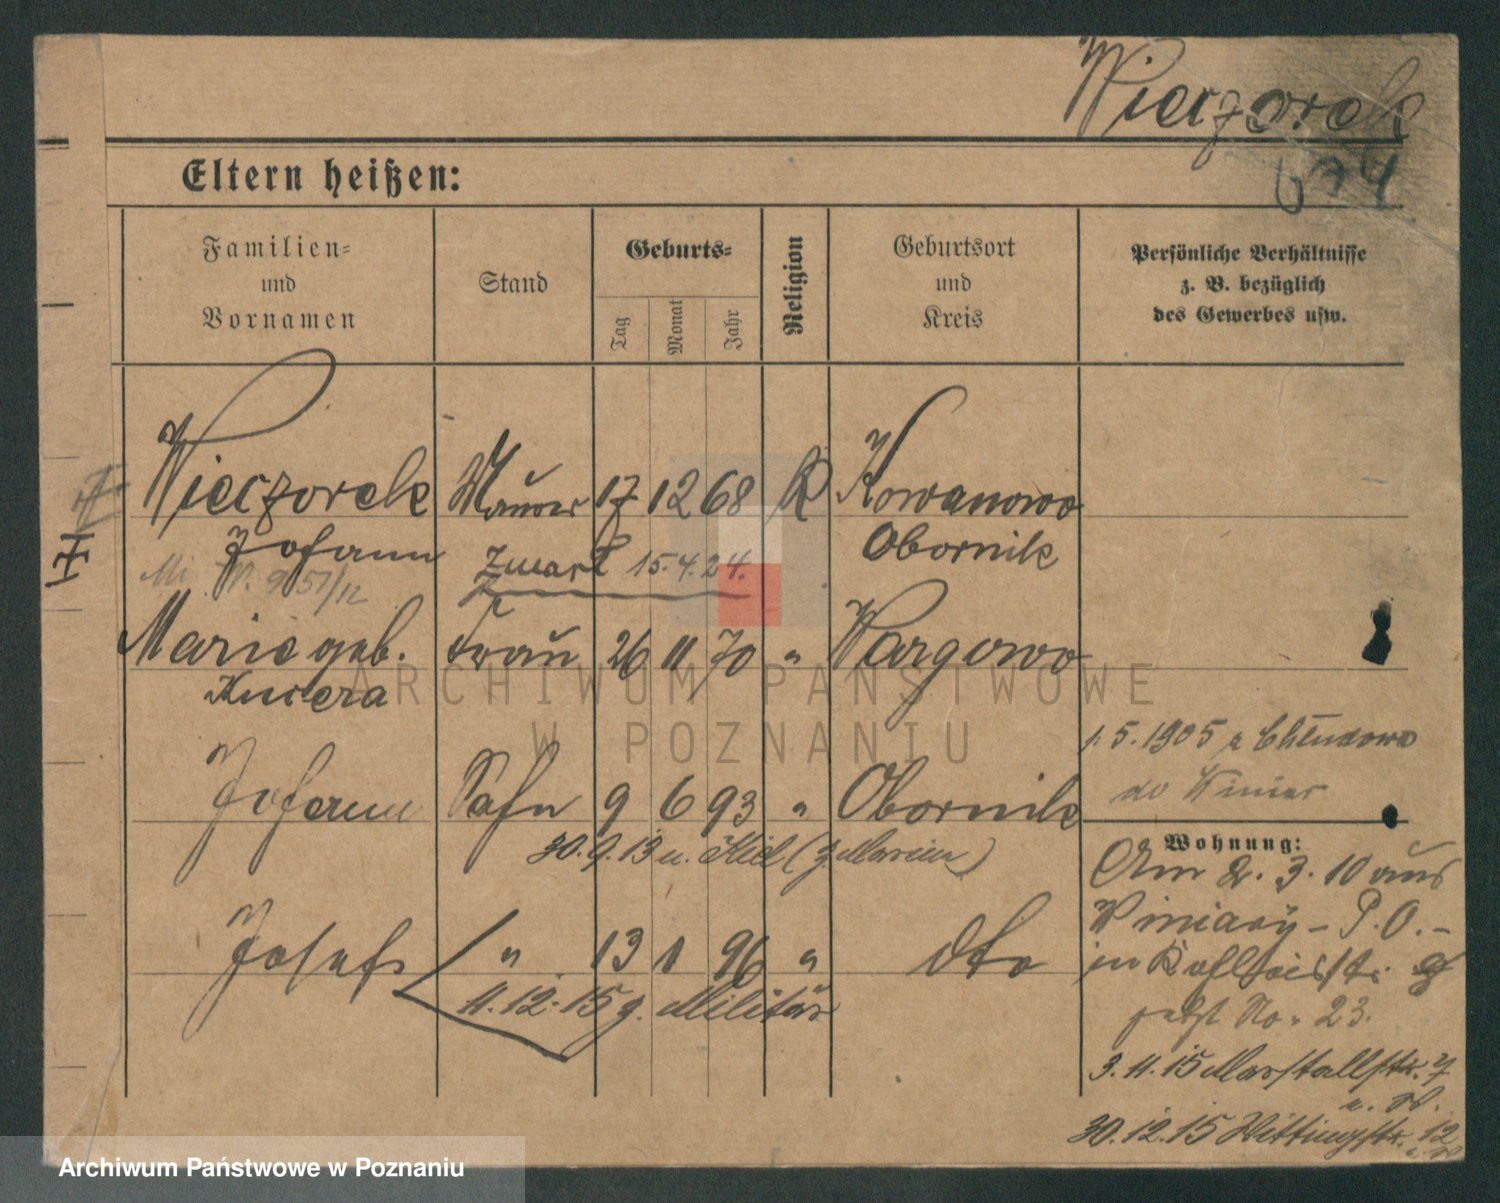 Wieczorek
Eltern heißen:
Familien- und Vornamen
Stand
Geburts-
Tag
Monat
Jahr
Religion
Geburtsort und Kreis
Persönliche Verhältnisse
z. B. bezüglich
des Gewerbes usw.
Wieczorek Maurer 17 12 68 K Kowanowo
Johann zmarł 15.4.24. Obornik
Marie geb. Frau 26 11 70 " Wargowo
Kuscera
p. 5. 1905 z Chludowo
do Winiar
Johann Sohn 9 6 93 " Obornik
30.9.13 n. Kiel (z. Marine)
Wohnung:
Am 2.3.10 aus
Winiary - P. O. -
in
Josef " 13 1 96 " dto
11.12.15 z. Militär
jetzt No. 23.
3.11.15 Marstallstr. 7
30.12.15 Wittingstr. 12
ARCHIWUM PAŃSTWOWE
W POZNANIU
Archiwum Państwowe w Poznaniu